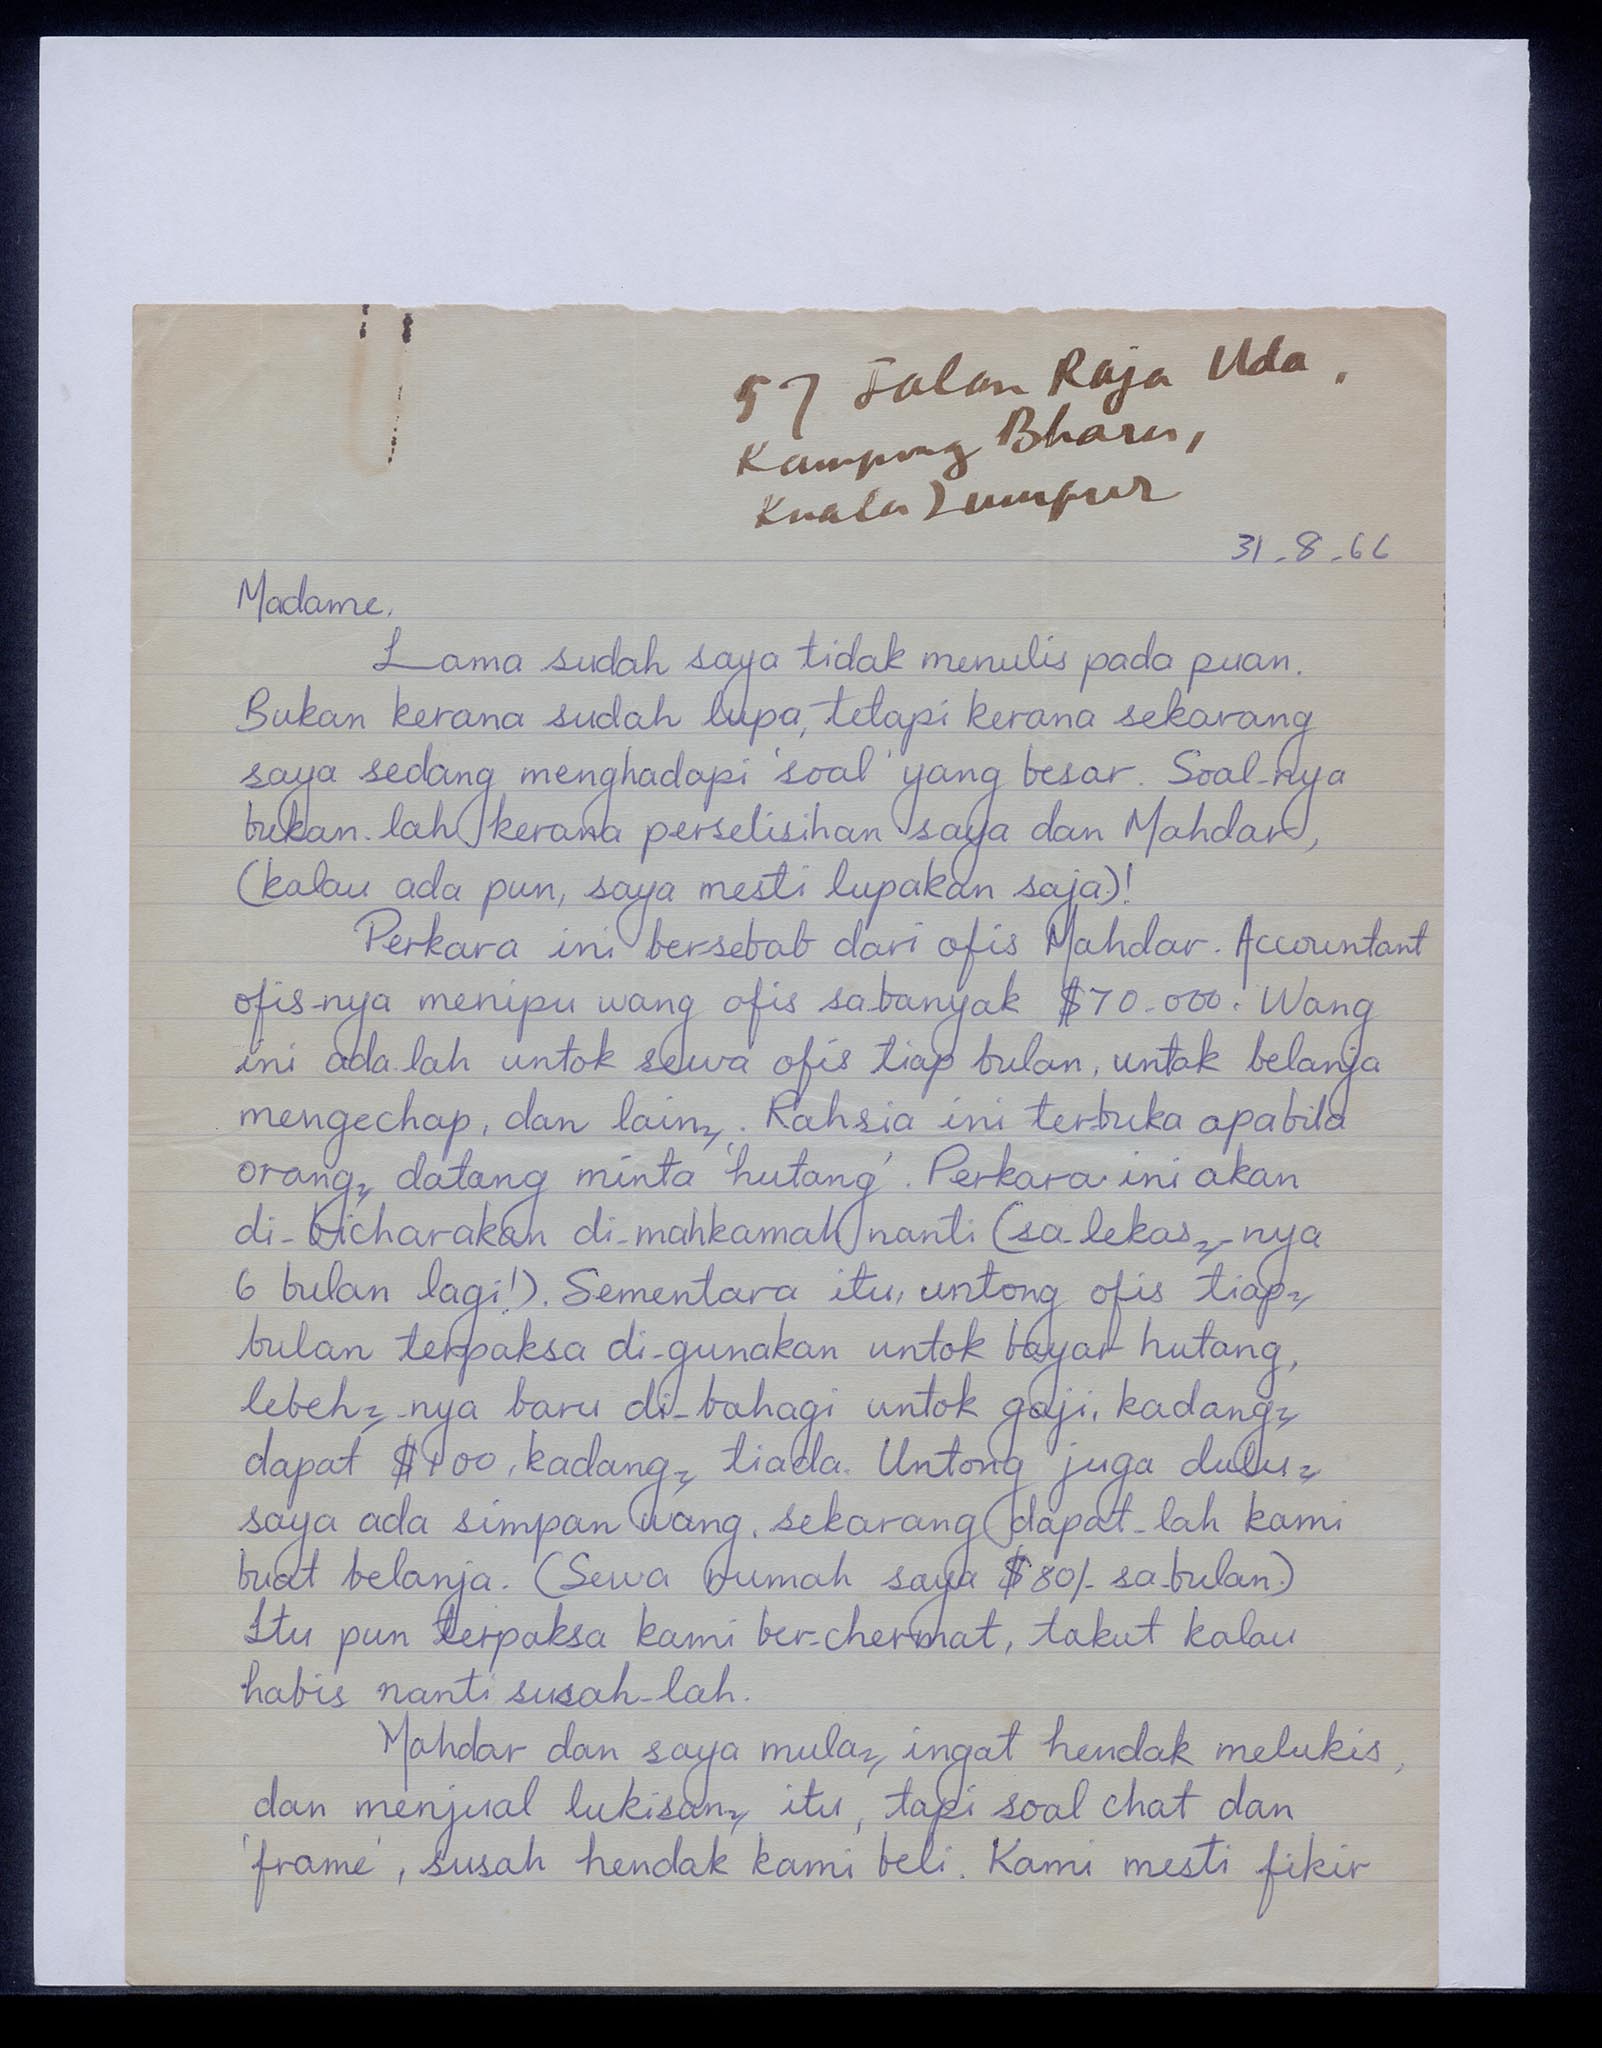 57 Jalan Raja Uda,
Kampong Bharu,
Kuala Lumpur
31-8-66
Madame,
Lama sudah saya tidak menulis pada puan.
Bukan kerana sudah lupa, tetapi kerana sekarang
saya sedang menghadapi 'soal' yang besar. Soal-nya
bukan-lah kerana perselisihan saya dan Mahdar,
(kalau ada pun, saya mesti lupakan saja)!
Perkara ini bersebab dari ofis Mahdar. Accountant
ofis-nya menipu wang ofis sabanyak $70-000. Wang
ini ada-lah untok sewa ofis tiap bulan, untok belanja
mengechap, dan lain2. Rahsia ini terbuka apabila
orang2 datang minta 'hutang'. Perkara ini akan
di-bicharakan di-mahkamah nanti (sa-lekas2-nya
6 bulan lagi!). Sementara itu, untong ofis tiap2
bulan terpaksa di-gunakan untok bayar hutang,
lebeh2-nya baru di-bahagi untok gaji, kadang2
dapat $100, kadang2 tiada. Untong juga dulu2
saya ada simpan wang, sekarang dapat-lah kami
buat belanja. (Sewa rumah saya $80/- sa-bulan.)
Itu pun terpaksa kami ber-chermat, takut kalau
habis nanti susah-lah.
Mahdar dan saya mula2 ingat hendak melukis,
dan menjual lukisan2 itu, tapi soal chat dan
'frame', susah hendak kami beli. Kami mesti fikir